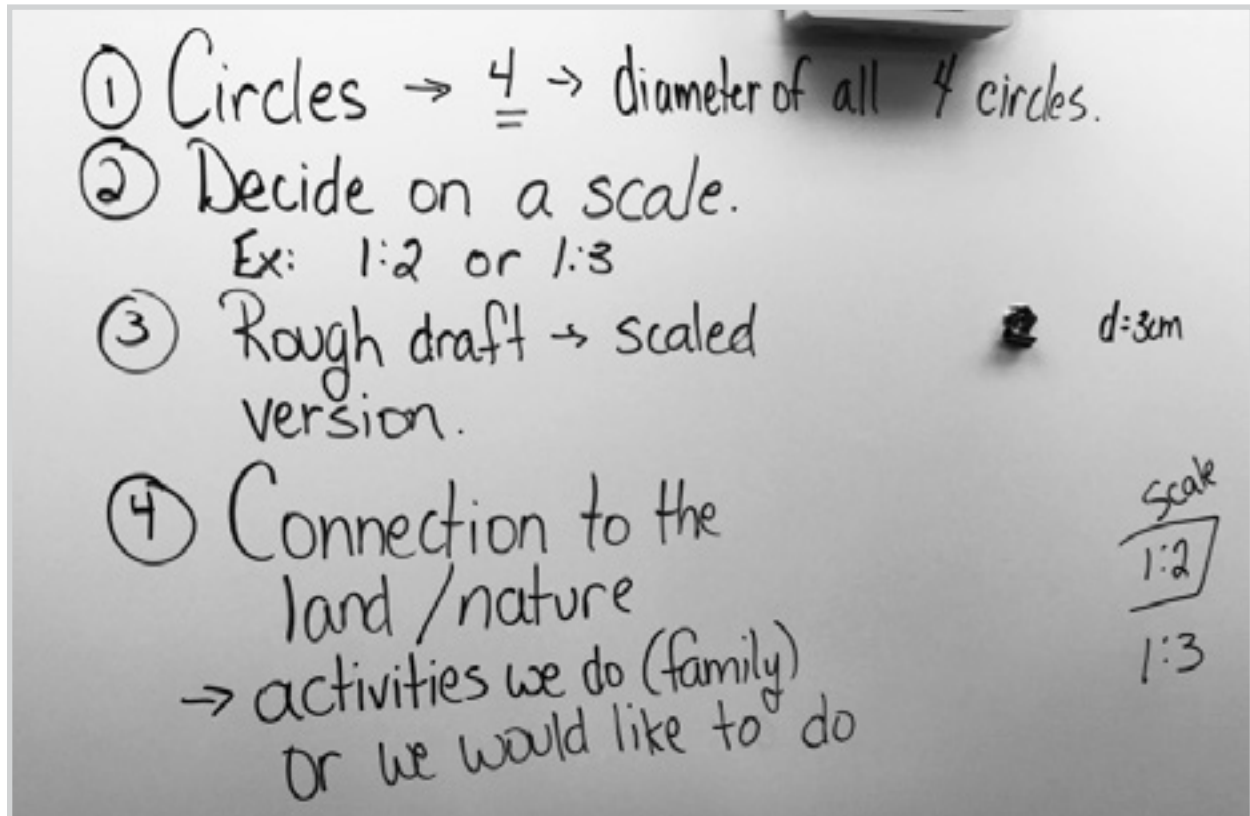 ① Circles → 4 → diameter of all 4 circles.
② Decide on a scale.
Ex: 1:2 or 1:3
③ Rough draft → scaled
version.
d=3cm
④ Connection to the
land/nature
→ activities we do (family)
or we would like to do
scale
1:2
1:3